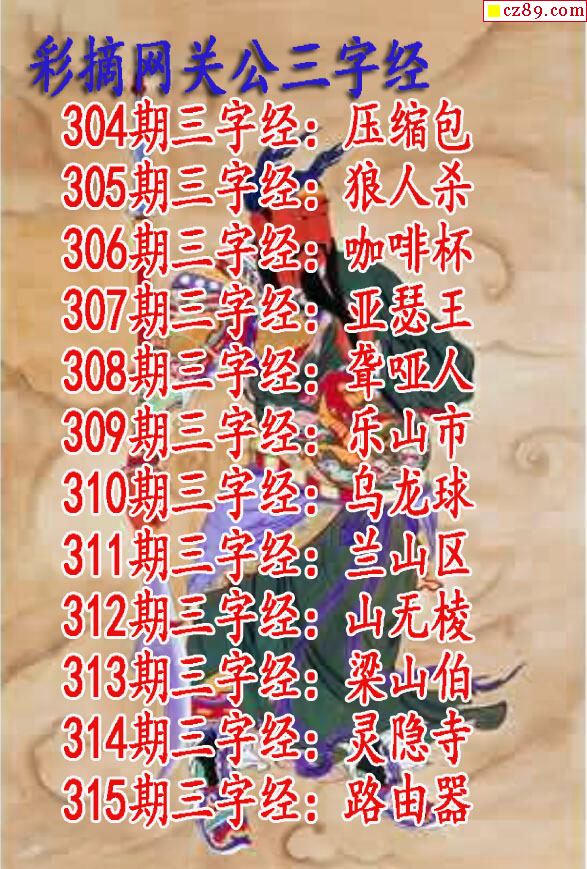 cz89.com
彩摘网关公三字经
304期三字经：压缩包
305期三字经：狼人杀
306期三字经：咖啡杯
307期三字经：亚瑟王
308期三字经：聋哑人
309期三字经：乐山市
310期三字经：乌龙球
311期三字经：兰山区
312期三字经：山无棱
313期三字经：梁山伯
314期三字经：灵隐寺
315期三字经：路由器